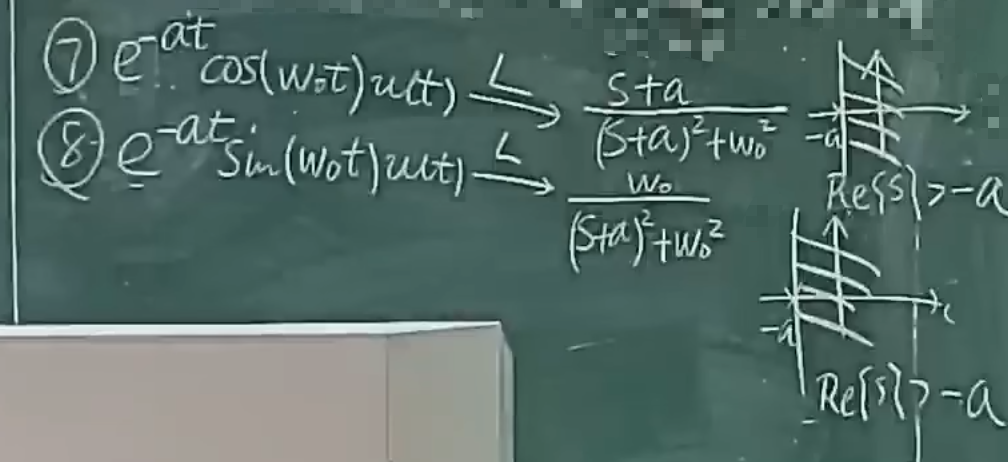 ⑦ e^{-at} cos(w₀t)u(t) —L→ \frac{s+a}{(s+a)^2+w_0^2}
-a
Re{s}>-a
⑧ e^{-at} sin(w₀t)u(t) —L→ \frac{w_0}{(s+a)^2+w_0^2}
-a
Re{s}>-a